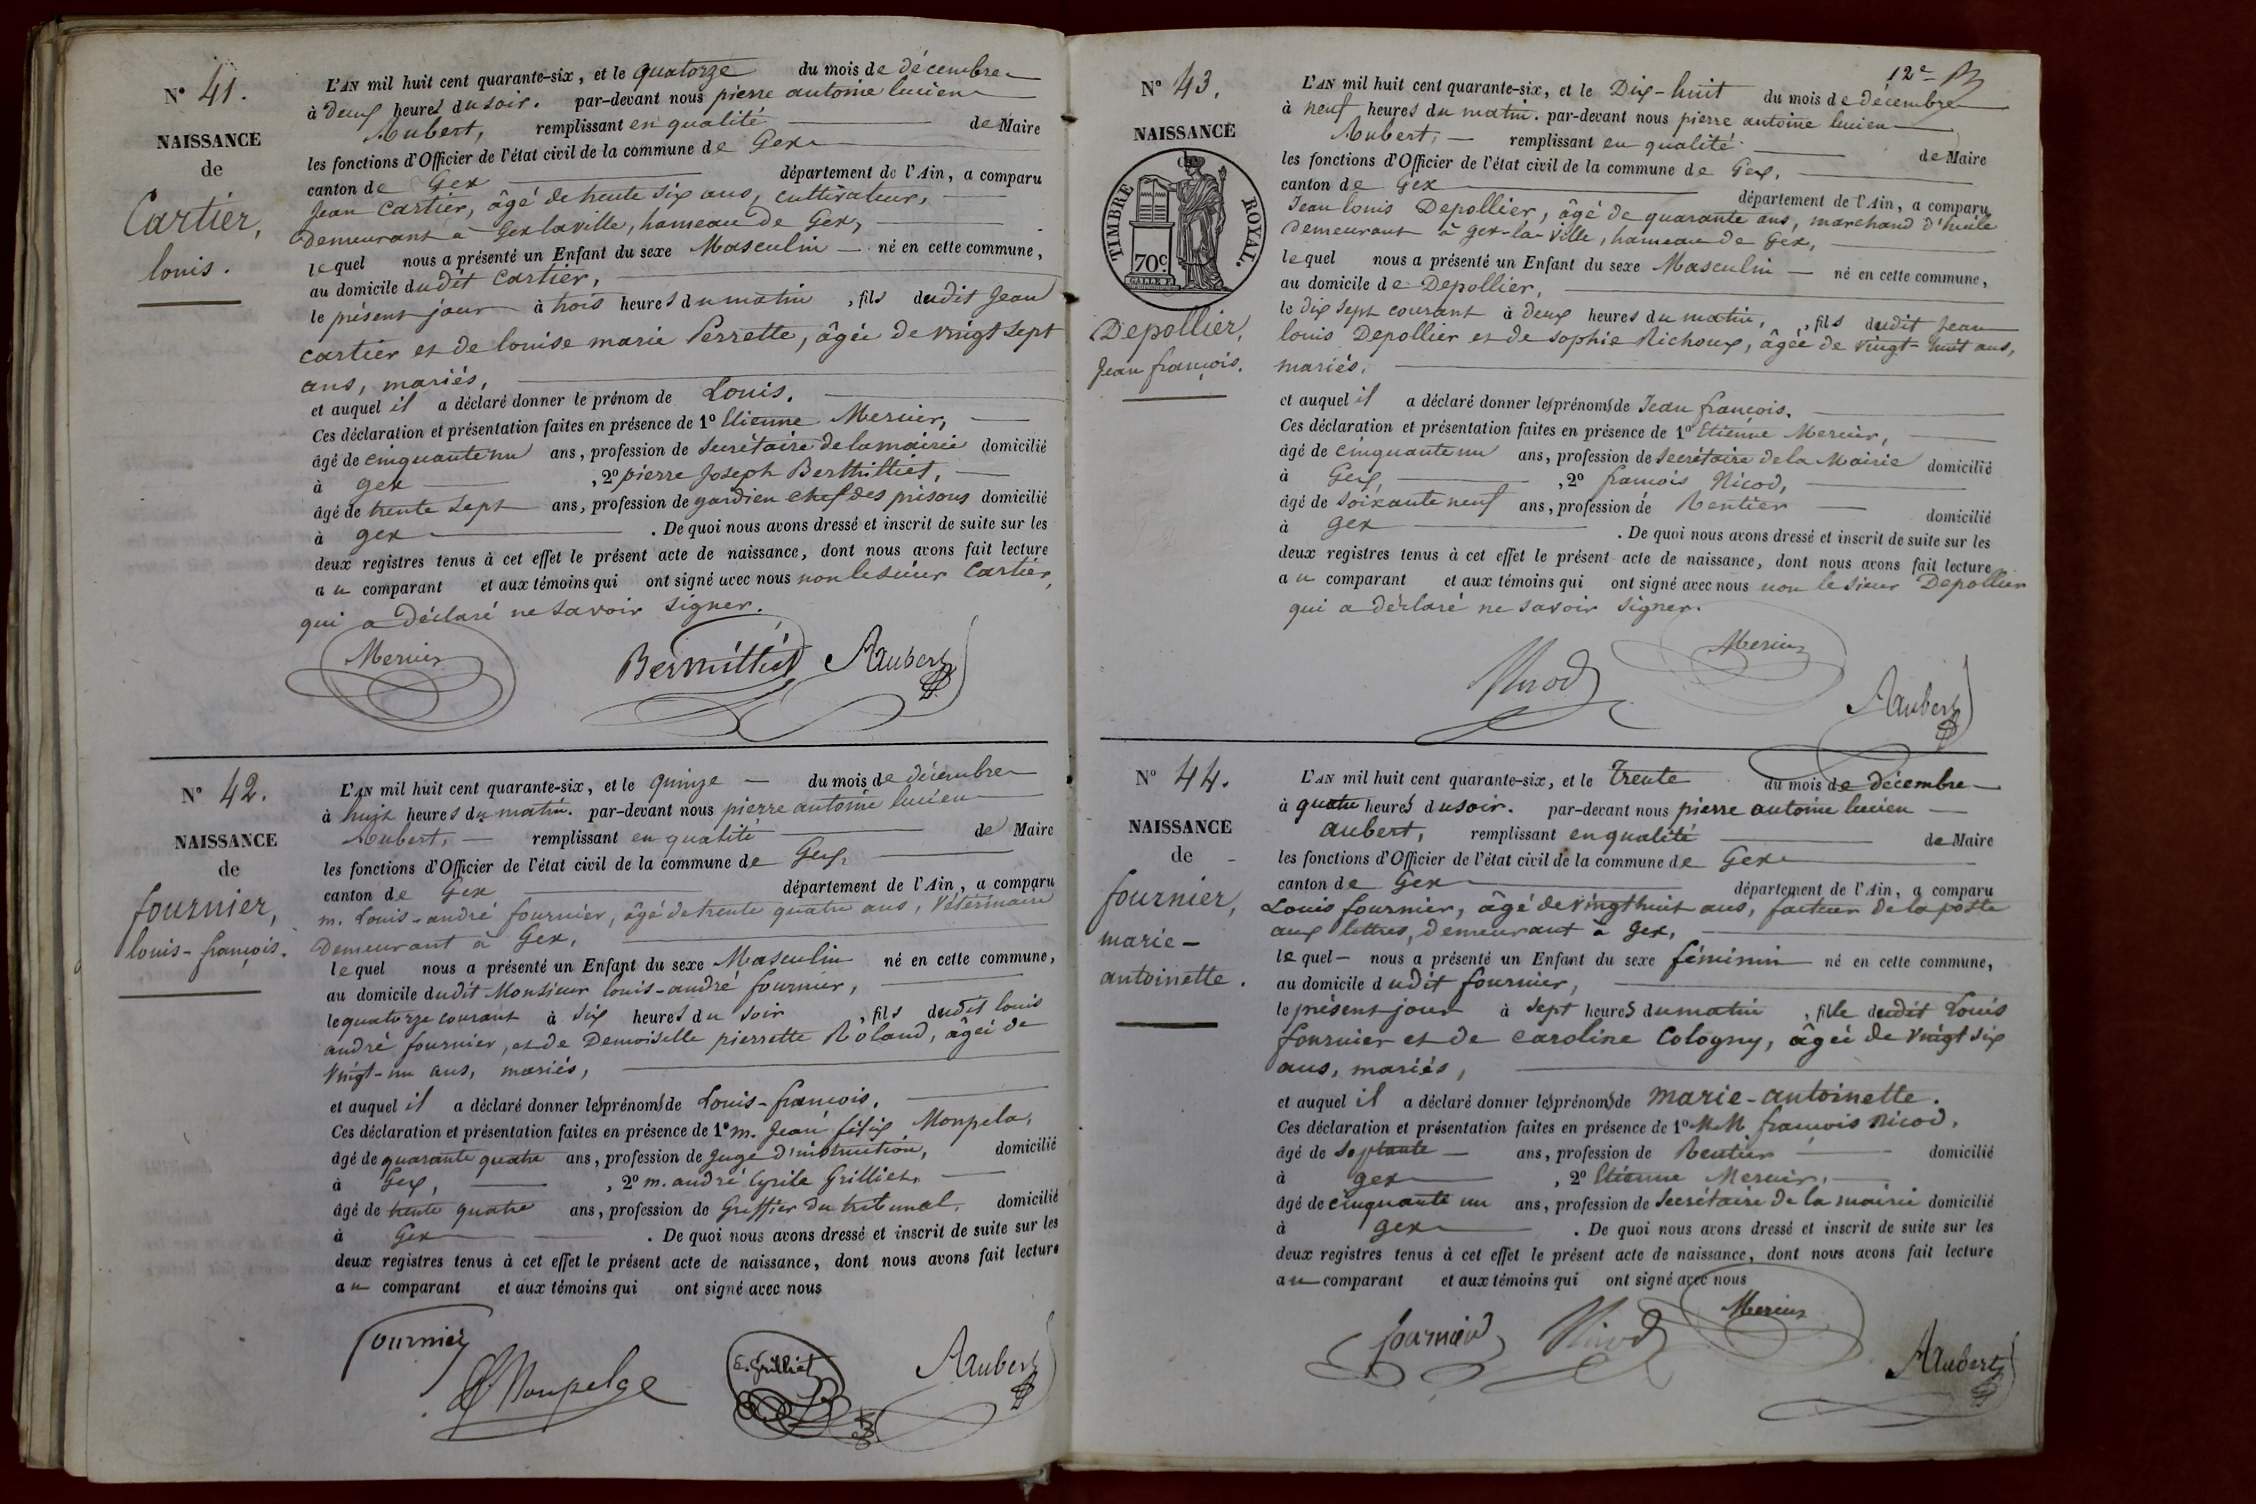 N° 41.
NAISSANCE
de
Cartier,
louis.
L'AN mil huit cent quarante-six, et le quatorze du mois de décembre
à deux heures du soir. par-devant nous pierre antoine lucien
Aubert, remplissant en qualité de Maire
les fonctions d'Officier de l'état civil de la commune de Gex
canton de Gex département de l'Ain, a comparu
Jean Cartier, âgé de trente six ans, cultivateur,
Demeurant à Gex la ville, hameau de Gex,
lequel nous a présenté un Enfant du sexe Masculin né en cette commune,
au domicile dudit Cartier,
le présent jour à trois heures du matin, fils dudit Jean
Cartier et de louise marie Perrette, âgée de vingt sept
ans, mariés,
et auquel il a déclaré donner le prénom de Louis.
Ces déclaration et présentation faites en présence de 1° Etienne Mercier,
âgé de cinquante un ans, profession de Secrétaire de la mairie domicilié
à gex, 2° pierre Joseph Berthilliet,
âgé de trente sept ans, profession de gardien chef des prisons domicilié
à gex. De quoi nous avons dressé et inscrit de suite sur les
deux registres tenus à cet effet le présent acte de naissance, dont nous avons fait lecture
au comparant et aux témoins qui ont signé avec nous non le sieur Cartier,
qui a déclaré ne savoir signer.
Mercier Aubert
N° 42.
NAISSANCE
de
fournier,
louis-françois.
L'AN mil huit cent quarante-six, et le quinze du mois de décembre
à huit heures du matin. par-devant nous pierre antoine lucien
Aubert, remplissant en qualité de Maire
les fonctions d'Officier de l'état civil de la commune de Gex,
canton de Gex département de l'Ain, a comparu
m. Louis-andré fournier, âgé de trente quatre ans, Vétérinaire
Demeurant à Gex,
lequel nous a présenté un Enfant du sexe Masculin né en cette commune,
au domicile dudit Monsieur louis-andré fournier,
le quatorze courant à six heures du soir, fils dudit louis
andré fournier, et de Demoiselle pierrette Roland, âgée de
vingt-un ans, mariés,
et auquel il a déclaré donner les prénoms de Louis-francois.
Ces déclaration et présentation faites en présence de 1° m. Jean félix Monpela,
âgé de quarante quatre ans, profession de Juge d'instruction, domicilié
à Gex, 2° m. andré Cyrile Grilliet,
âgé de trente quatre ans, profession de Greffier du tribunal, domicilié
à Gex. De quoi nous avons dressé et inscrit de suite sur les
deux registres tenus à cet effet le présent acte de naissance, dont nous avons fait lecture
au comparant et aux témoins qui ont signé avec nous
Fournier
Grilliet Aubert
12e
N° 43.
NAISSANCE
TIMBRE ROYAL.
70c
Depollier,
Jean françois.
L'AN mil huit cent quarante-six, et le Dix-huit du mois de décembre
à neuf heures du matin. par-devant nous pierre antoine lucien
Aubert, remplissant en qualité de Maire
les fonctions d'Officier de l'état civil de la commune de Gex,
canton de Gex département de l'Ain, a comparu
Jean louis Depollier, âgé de quarante ans, marchand d'huile
Demeurant à gex-la-ville, hameau de Gex,
lequel nous a présenté un Enfant du sexe Masculin né en cette commune,
au domicile de Depollier,
le dix sept courant à deux heures du matin, fils dudit Jean
louis Depollier et de sophie Richoux, âgée de vingt-huit ans,
mariés.
et auquel il a déclaré donner les prénoms de Jean françois.
Ces déclaration et présentation faites en présence de 1° Etienne Mercier,
âgé de cinquante un ans, profession de Secrétaire de la Mairie domicilié
à Gex, 2° francois Nicod,
âgé de soixante neuf ans, profession de Rentier domicilié
à gex. De quoi nous avons dressé et inscrit de suite sur les
deux registres tenus à cet effet le présent acte de naissance, dont nous avons fait lecture
au comparant et aux témoins qui ont signé avec nous non le sieur Depollier
qui a déclaré ne savoir signer.
Nicod Mercier
Aubert
N° 44.
NAISSANCE
de
fournier,
marie-
antoinette.
L'AN mil huit cent quarante-six, et le Trente du mois de décembre
à quatre heures du soir. par-devant nous pierre antoine lucien
aubert, remplissant en qualité de Maire
les fonctions d'Officier de l'état civil de la commune de Gex
canton de Gex département de l'Ain, a comparu
Louis fournier, âgé de vingt huit ans, facteur de la poste
aux lettres, demeurant à gex,
lequel nous a présenté un Enfant du sexe féminin né en cette commune,
au domicile dudit fournier,
le présent jour à sept heures du matin, fille dudit Louis
fournier et de caroline Cologny, âgée de vingt six
ans, mariés,
et auquel il a déclaré donner les prénoms de marie-antoinette.
Ces déclaration et présentation faites en présence de 1° MM françois Nicod,
âgé de septante ans, profession de Rentier domicilié
à gex, 2° Etienne Mercier,
âgé de cinquante un ans, profession de Secrétaire de la mairie domicilié
à gex. De quoi nous avons dressé et inscrit de suite sur les
deux registres tenus à cet effet le présent acte de naissance, dont nous avons fait lecture
au comparant et aux témoins qui ont signé avec nous
fournier Nicod Mercier
Aubert